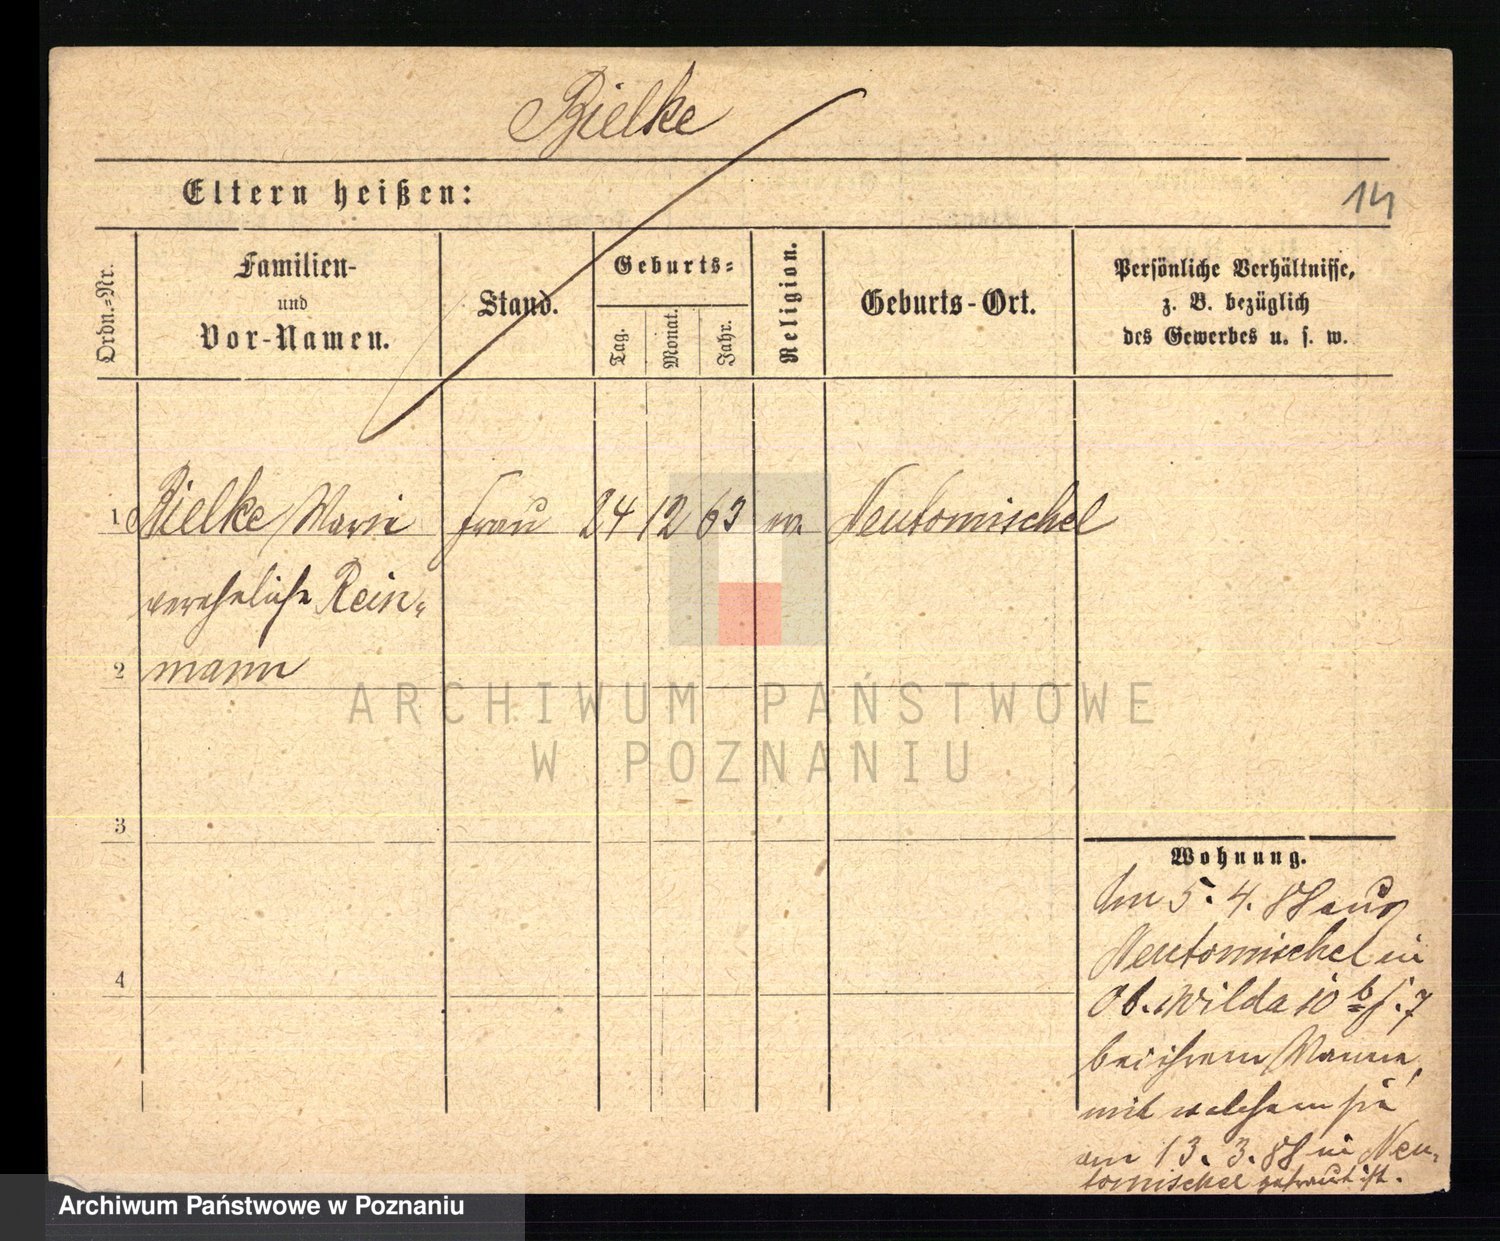 Bielke
Eltern heißen:
14
Ordn.=Nr.
Familien-
und
Vor-Namen.
Stand.
Geburts=
Tag.
Monat.
Jahr.
Religion.
Geburts-Ort.
Persönliche Verhältnisse,
z. B. bezüglich
des Gewerbes u. s. w.
1 Bielke Marie Frau 24 12 63 ev. Neutomischel
verehelichte Rein-
2 mann
3
4
Wohnung.
Am 5. 4. 88 aus
Neutomischel in
Ob. Wilda 10 b f. 7
bei ihrem Manne,
mit welchem sie
am 13. 3. 88 in Neu-
tomischel getraut ist.
ARCHIWUM PAŃSTWOWE
W POZNANIU
Archiwum Państwowe w Poznaniu